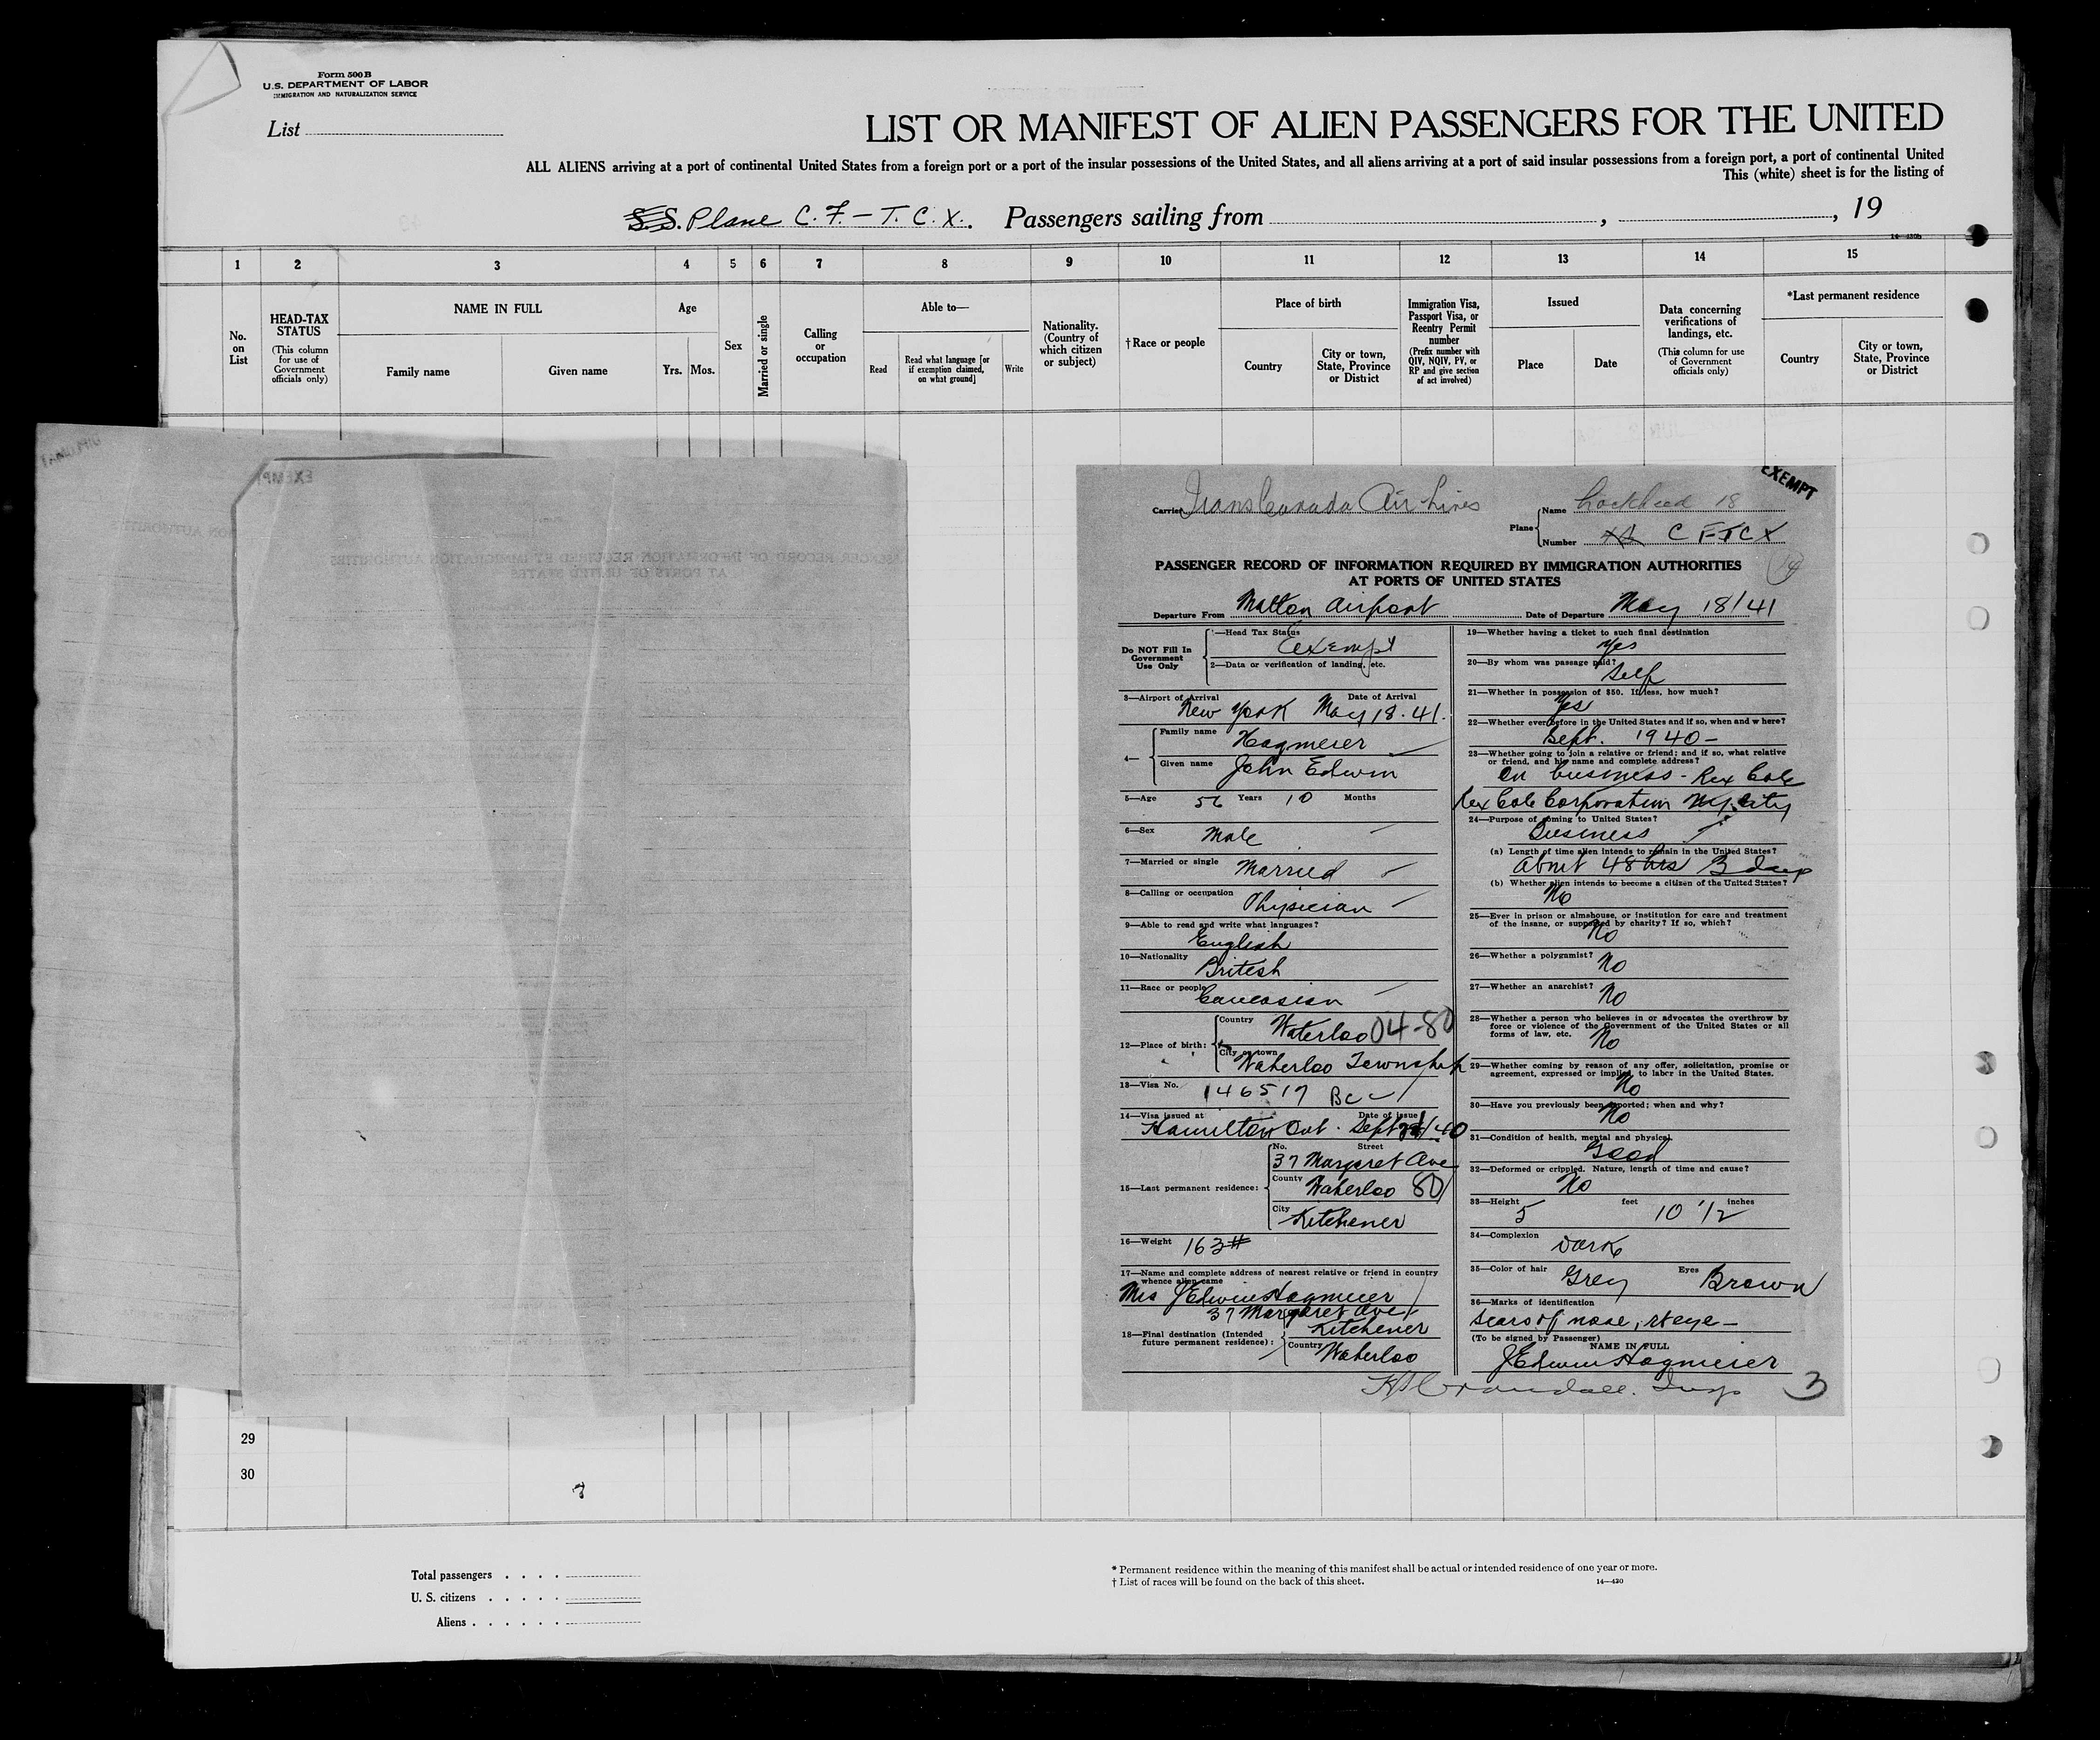 Form 500 B
U.S. DEPARTMENT OF LABOR
IMMIGRATION AND NATURALIZATION SERVICE
List
LIST OR MANIFEST OF ALIEN PASSENGERS FOR THE UNITED
ALL ALIENS arriving at a port of continental United States from a foreign port or a port of the insular possessions of the United States, and all aliens arriving at a port of said insular possessions from a foreign port, a port of continental United
This (white) sheet is for the listing of
S.S. Plane C. F. – T. C. X. Passengers sailing from , , 19
14—430b
1 2 3 4 5 6 7 8 9 10 11 12 13 14 15
No. on List
HEAD-TAX STATUS
(This column for use of Government officials only)
NAME IN FULL
Family name
Given name
Age
Yrs. Mos.
Sex
Married or single
Calling or occupation
Able to—
Read
Read what language [or if exemption claimed, on what ground]
Write
Nationality. (Country of which citizen or subject)
† Race or people
Place of birth
Country
City or town, State, Province or District
Immigration Visa, Passport Visa, or Reentry Permit number
(Prefix number with QIV, NQIV, PV, or RP and give section of act involved)
Issued
Place
Date
Data concerning verifications of landings, etc.
(This column for use of Government officials only)
*Last permanent residence
Country
City or town, State, Province or District
EXEMPT
Carrier Trans Canada Air Lines
Plane
Name Lockheed 18
Number CFTCX
PASSENGER RECORD OF INFORMATION REQUIRED BY IMMIGRATION AUTHORITIES
AT PORTS OF UNITED STATES
Departure From Malton Airport Date of Departure May 18/41
Do NOT Fill In Government Use Only
1—Head Tax Status Exempt
2—Data or verification of landing, etc.
3—Airport of Arrival Date of Arrival
New York May 18. 41.
4—
Family name Hagmeier
Given name John Edwin
5—Age 56 Years 10 Months
6—Sex Male
7—Married or single Married
8—Calling or occupation Physician
9—Able to read and write what languages?
English
10—Nationality British
11—Race or people Caucasian
12—Place of birth:
Country Waterloo 04-80
City or town Waterloo Township
13—Visa No. 146517
14—Visa issued at Date of issue
Hamilton Ont. Sept /40
15—Last permanent residence:
No. Street
37 Margaret Ave
County Waterloo 80
City Kitchener
16—Weight 163#
17—Name and complete address of nearest relative or friend in country
whence alien came
Mrs J Edwin Hagmeier
37 Margaret Ave
18—Final destination (Intended future permanent residence):
Kitchener
Country Waterloo
19—Whether having a ticket to such final destination
Yes
20—By whom was passage paid?
Self
21—Whether in possession of $50. If less, how much?
Yes
22—Whether ever before in the United States and if so, when and where?
Sept. 1940 –
23—Whether going to join a relative or friend; and if so, what relative
or friend, and his name and complete address?
On business - Rex Cole
Rex Cole Corporation N.Y. City
24—Purpose of coming to United States?
Business
(a) Length of time alien intends to remain in the United States?
About 48 hrs 3 days
(b) Whether alien intends to become a citizen of the United States?
No
25—Ever in prison or almshouse, or institution for care and treatment
of the insane, or supported by charity? If so, which?
No
26—Whether a polygamist? No
27—Whether an anarchist? No
28—Whether a person who believes in or advocates the overthrow by
force or violence of the Government of the United States or all
forms of law, etc. No
29—Whether coming by reason of any offer, solicitation, promise or
agreement, expressed or implied, to labor in the United States.
No
30—Have you previously been deported; when and why?
No
31—Condition of health, mental and physical.
Good
32—Deformed or crippled. Nature, length of time and cause?
No
33—Height 5 feet 10 1/2 inches
34—Complexion Dark
35—Color of hair Grey Eyes Brown
36—Marks of identification
Scars of nose, rt eye –
(To be signed by Passenger)
NAME IN FULL
J Edwin Hagmeier
Crandall. Insp
3
29
30
Total passengers
U. S. citizens
Aliens
* Permanent residence within the meaning of this manifest shall be actual or intended residence of one year or more.
† List of races will be found on the back of this sheet.
14—430